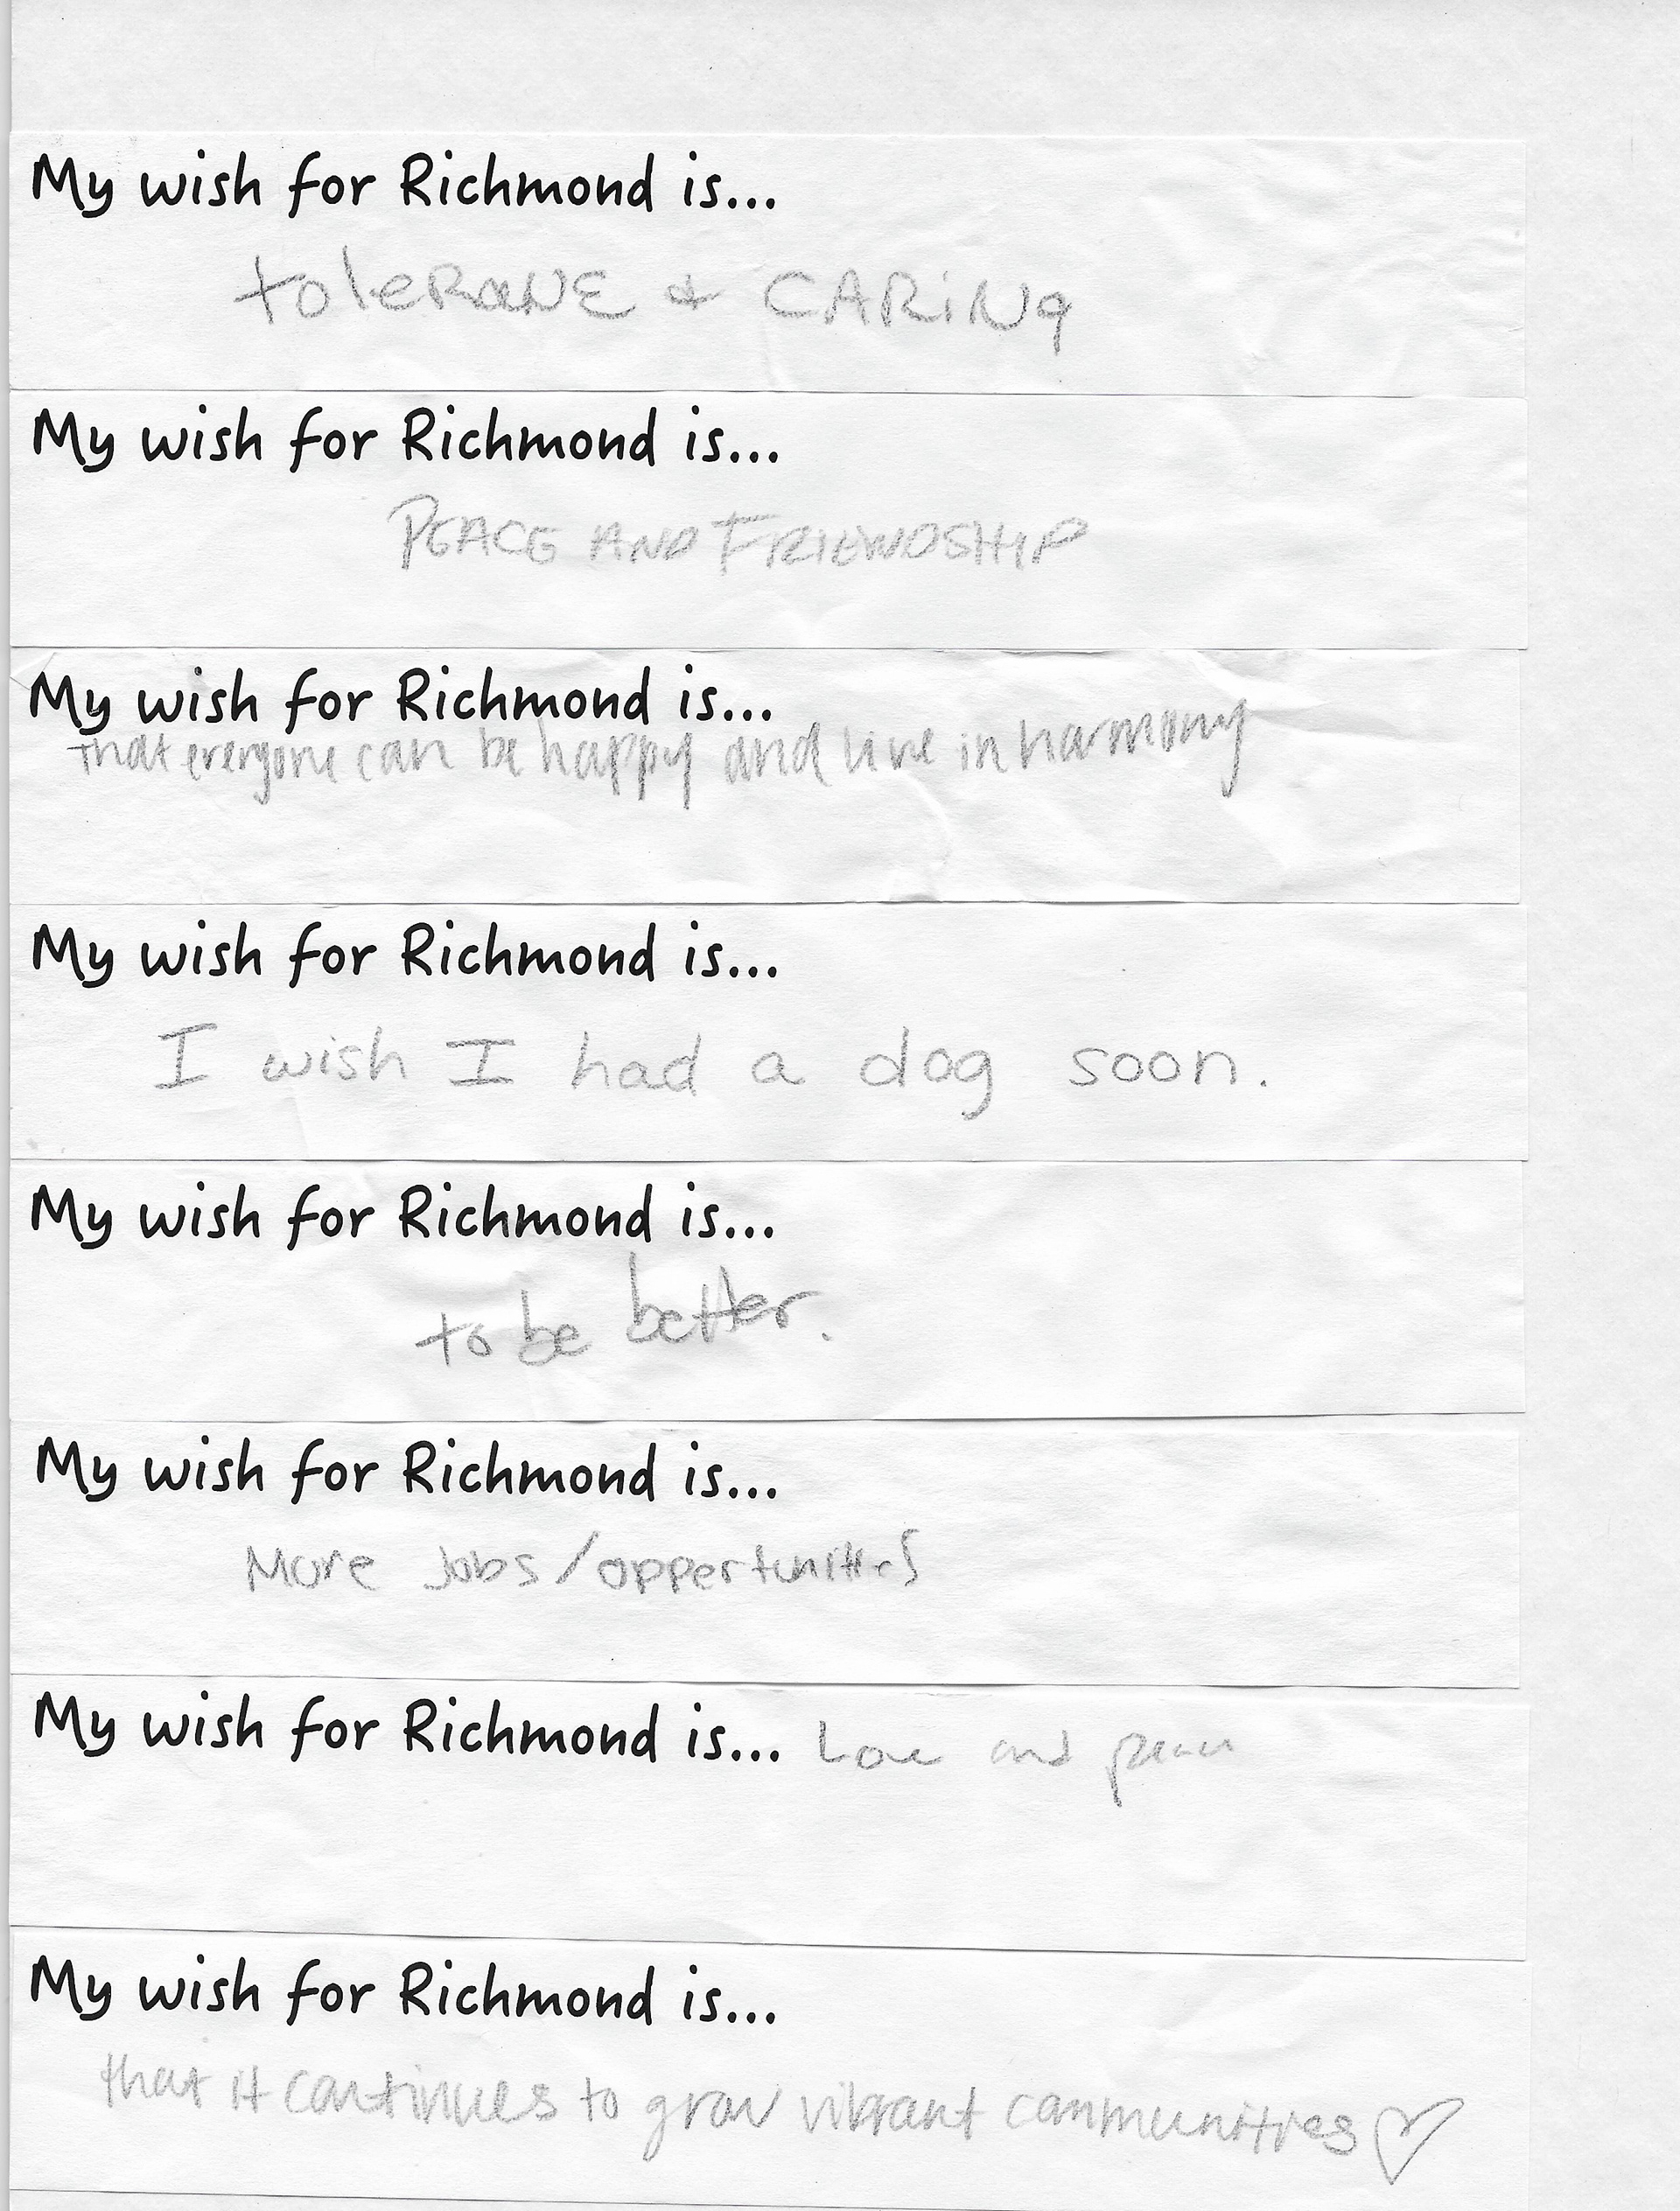 My wish for Richmond is...
toleRaNE & CARiNg
My wish for Richmond is...
PEACE AND FRIENDSHIP
My wish for Richmond is...
that everyone can be happy and live in harmony
My wish for Richmond is...
I wish I had a dog soon.
My wish for Richmond is...
to be better.
My wish for Richmond is...
More Jobs/oppertunities
My wish for Richmond is... Love and peace
My wish for Richmond is...
that it continues to grow vibrant communities ♡